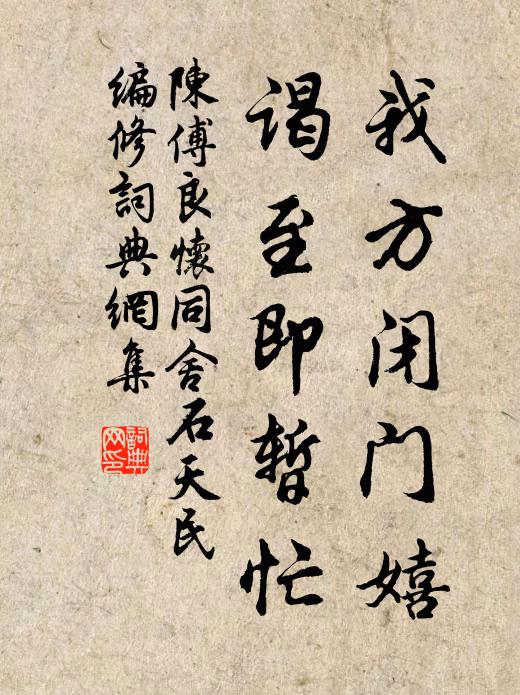 我方闭门嬉
谒至即暂忙
陳傅良懷同舍石天民
編修詞典網集
詞典网印